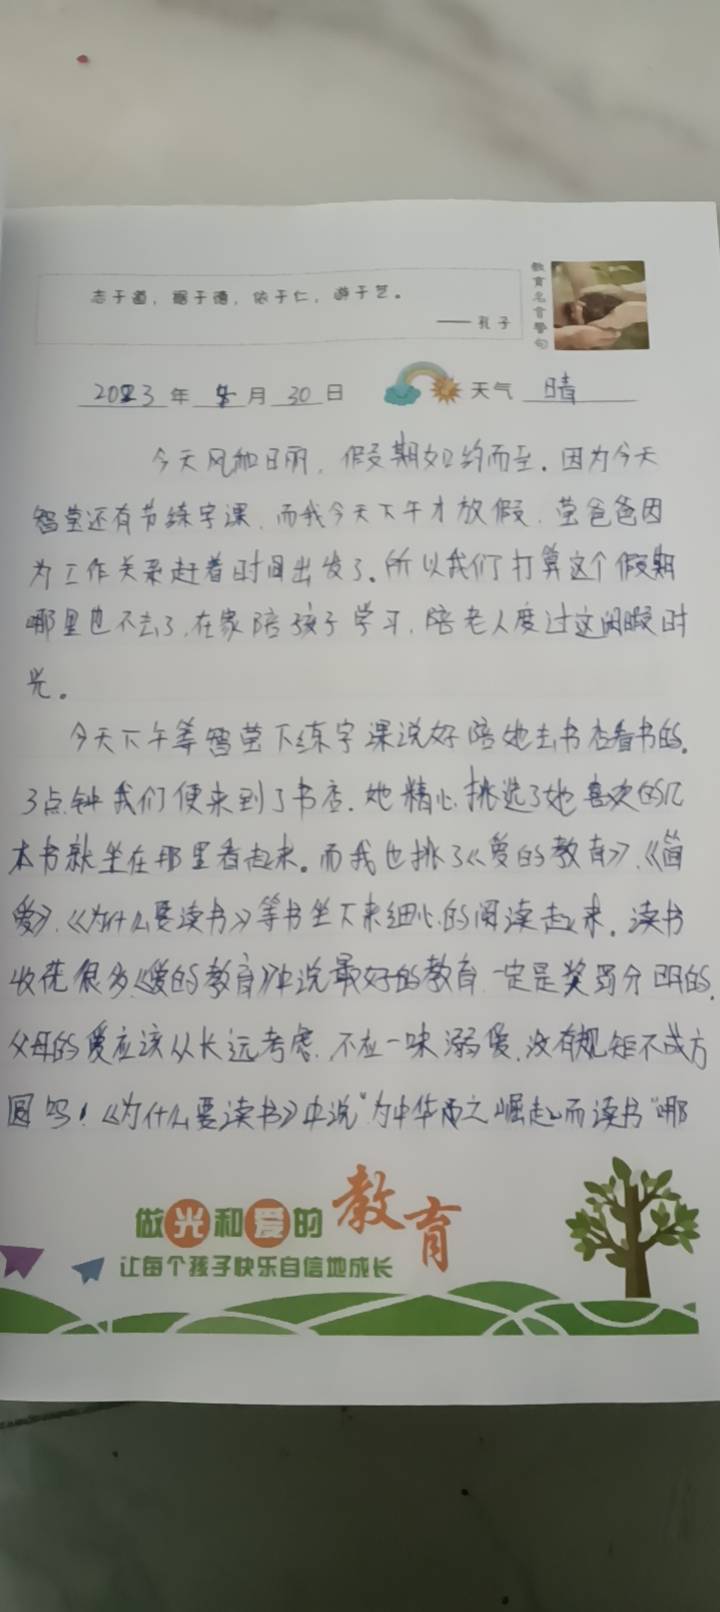 志于道，据于德，依于仁，游于艺。
——孔子
教育名言警句
2023年 月30日 天气 晴
今天风和日丽，假期如约而至。因为今天
智莹还有节练字课，而我今天下午才放假，莹爸爸因
为工作关系赶着时间出发了。所以我们打算这个假期
哪里也不去了，在家陪孩子学习，陪老人度过这闲暇时
光。
今天下午等智莹下练字课说好陪她去书店看书的，
3点钟我们便来到了书店，她精心挑选了她喜欢的几
本书就坐在那里看起来。而我也挑了《爱的教育》、《简
爱》、《为什么要读书》等书坐下来细心的阅读起来，读书
收获很多，《爱的教育》中说最好的教育一定是奖罚分明的，
父母的爱应该从长远考虑，不应一味溺爱，没有规矩不成方
圆吗！《为什么要读书》中说"为中华而之崛起而读书"哪
做光和爱的教育
让每个孩子快乐自信地成长